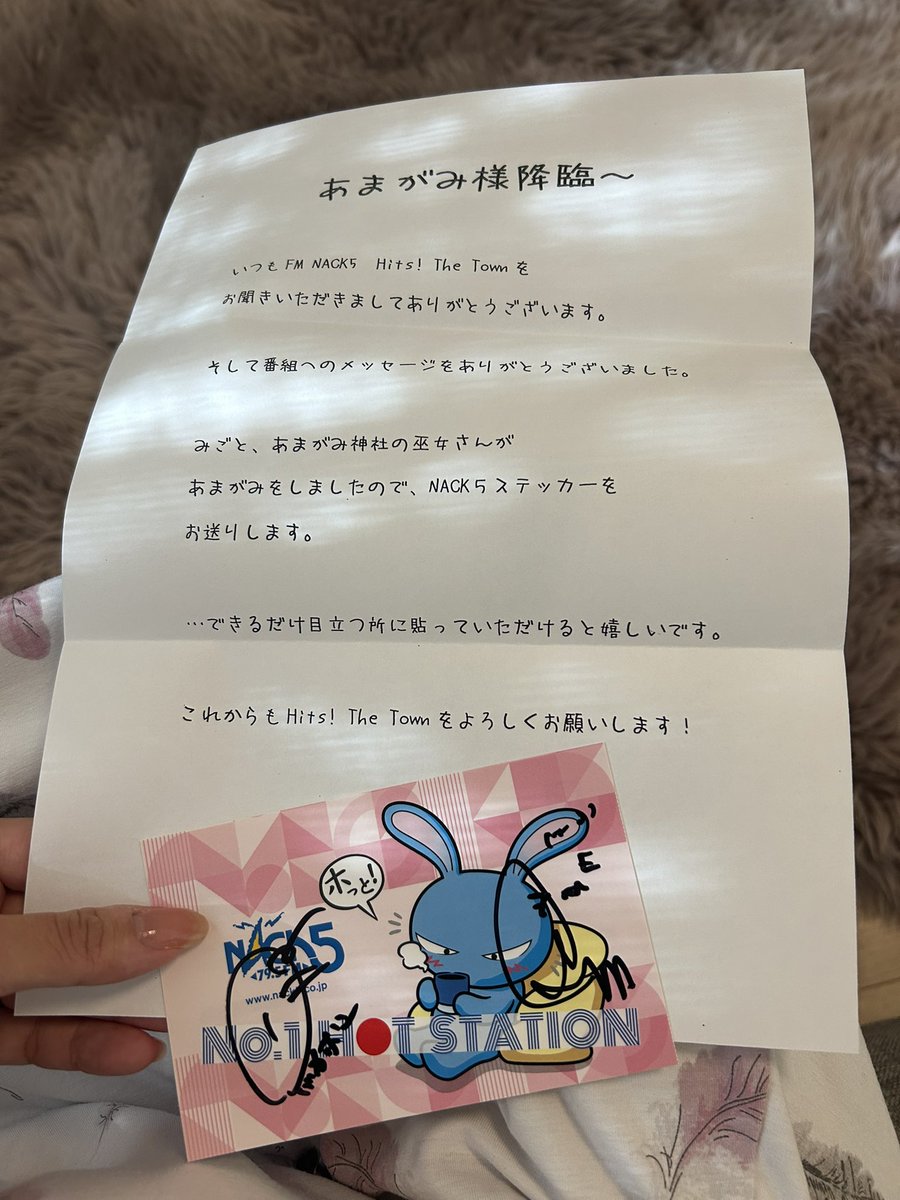 あまがみ様降臨～
いつもFM NACK5 Hits! The Townを
お聞きいただきましてありがとうございます。
そして番組へのメッセージをありがとうございました。
みごと、あまがみ神社の巫女さんが
あまがみをしましたので、NACK5ステッカーを
お送りします。
…できるだけ目立つ所に貼っていただけると嬉しいです。
これからもHits! The Townをよろしくお願いします！
ホっと!
NACK5
79.5
www.nack5.co.jp
No.1 HOT STATION